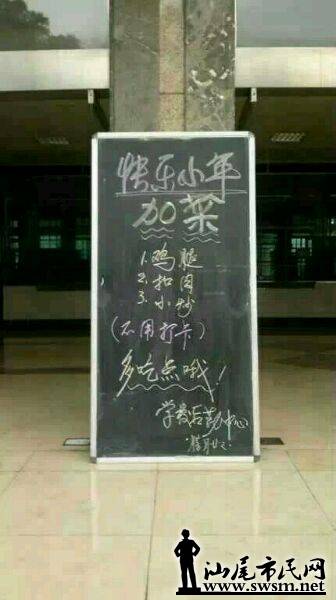 快乐小年
加菜
1.鸡腿
2.扣肉
3.小炒
(不用打卡)
多吃点哦!
学校后勤中心
汕尾市民网
www.swsm.net